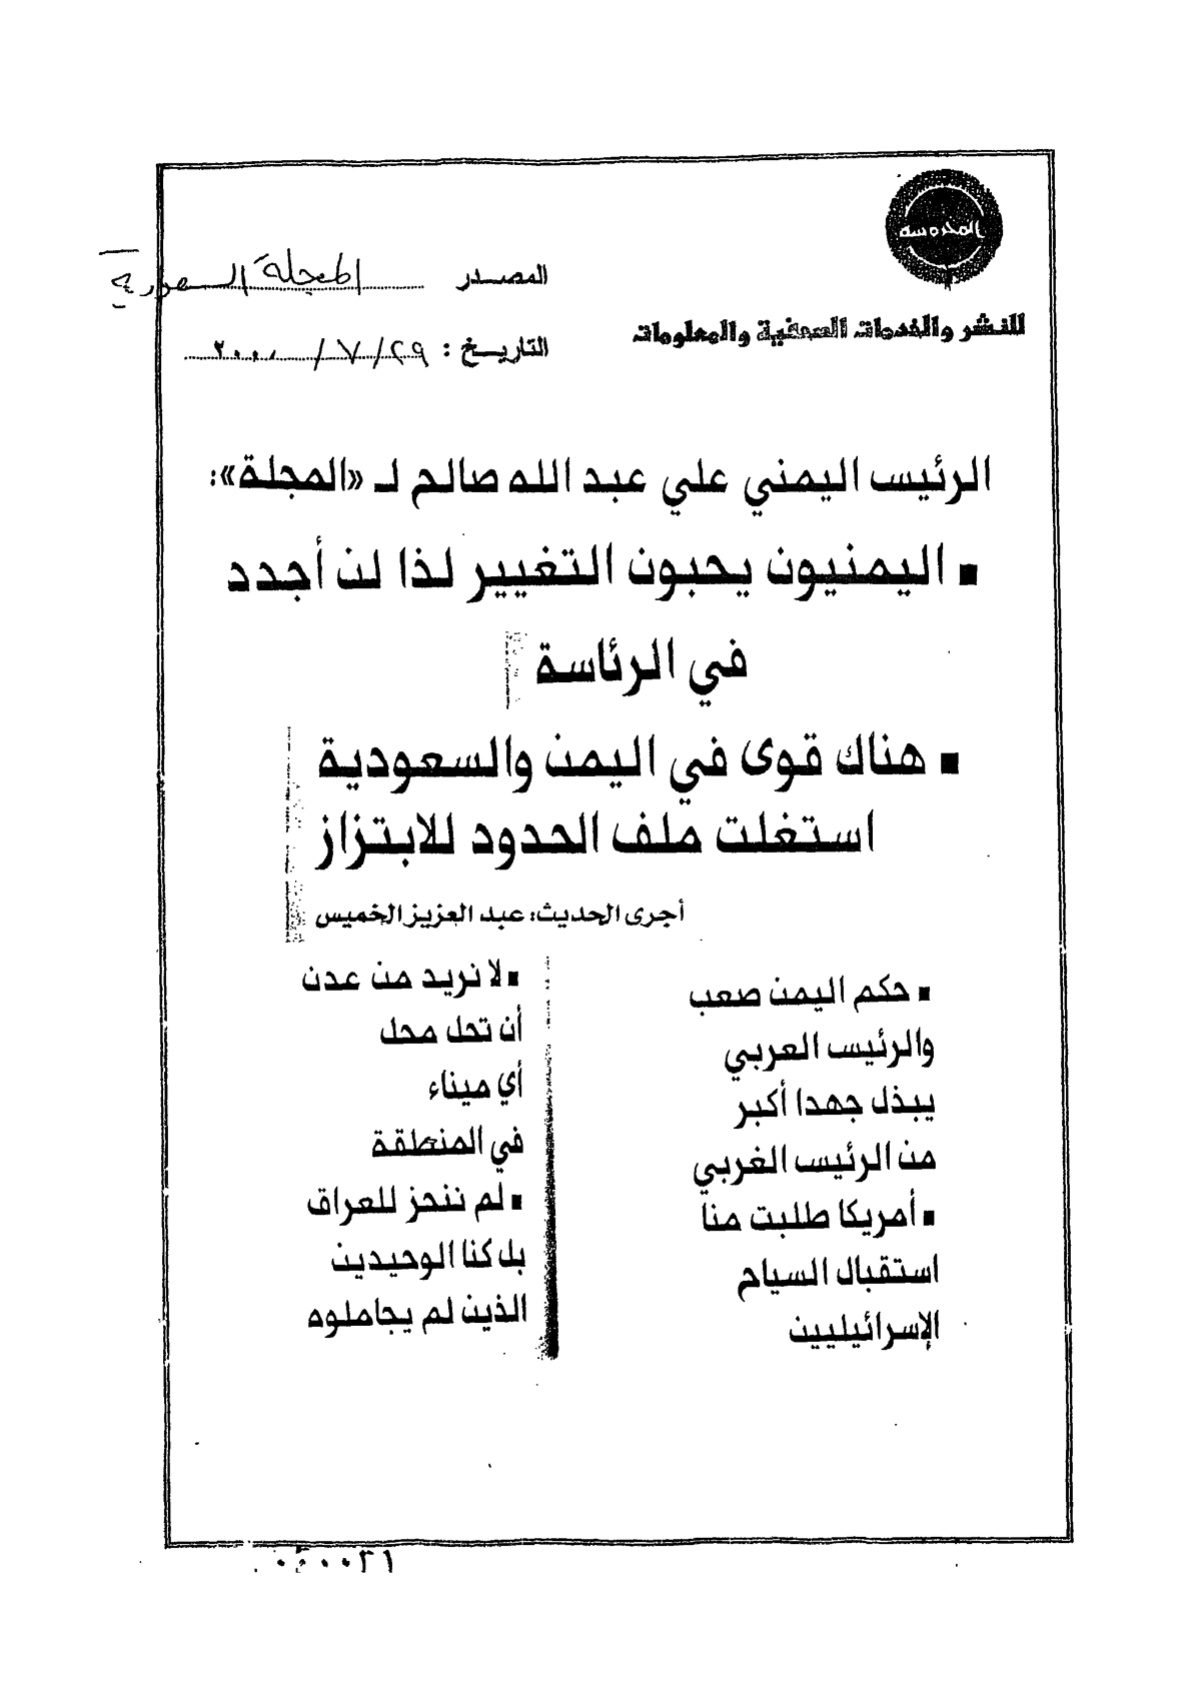 المحروسة
للنشر والخدمات الصحفية والمعلومات
المصدر المجلة السعودية
التاريخ : ٢٩/٧/٢٠٠٠
الرئيس اليمني علي عبد الله صالح لـ «المجلة»:
▪ اليمنيون يحبون التغيير لذا لن أجدد
في الرئاسة
▪ هناك قوى في اليمن والسعودية
استغلت ملف الحدود للابتزاز
أجرى الحديث: عبد العزيز الخميس
▪ حكم اليمن صعب
والرئيس العربي
يبذل جهدا أكبر
من الرئيس الغربي
▪ أمريكا طلبت منا
استقبال السياح
الإسرائيليين
▪ لا نريد من عدن
أن تحل محل
أي ميناء
في المنطقة
▪ لم ننحز للعراق
بل كنا الوحيدين
الذين لم يجاملوه